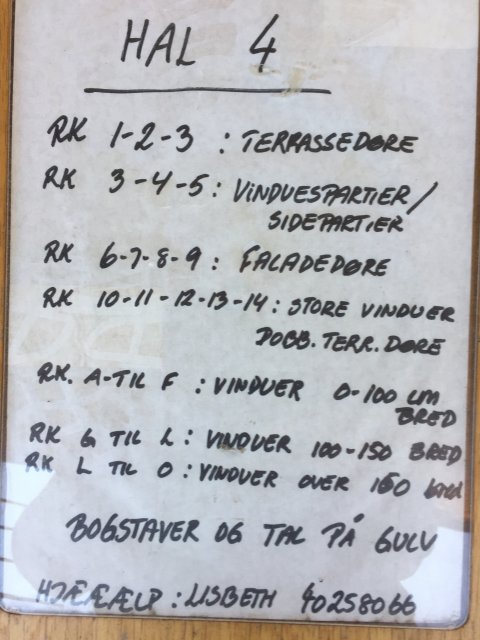 HAL 4
RK 1-2-3 : TERRASSEDØRE
RK 3-4-5 : VINDUESPARTIER/
SIDEPARTIER
RK 6-7-8-9 : FACADEDØRE
RK 10-11-12-13-14 : STORE VINDUER
DOBB. TERR. DØRE
RK. A-TIL F : VINDUER 0-100 CM
BRED
RK G TIL L : VINDUER 100-150 BRED
RK L TIL O : VINDUER OVER 150
BOGSTAVER OG TAL PÅ GULV
HJÆÆÆLP : LISBETH 40258066